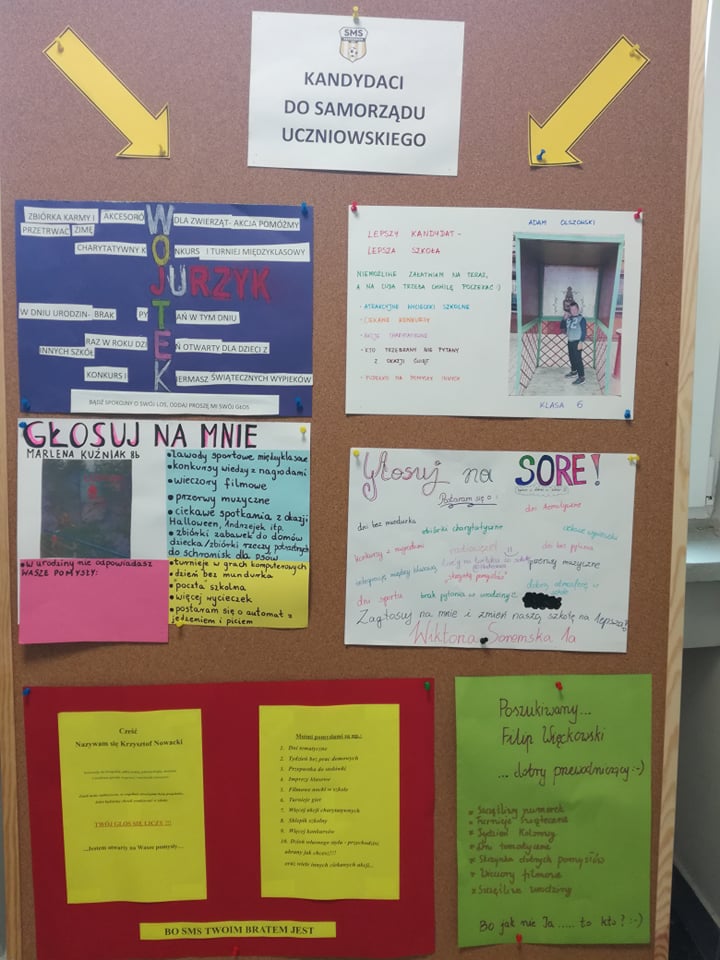 SMS
KANDYDACI
DO SAMORZĄDU
UCZNIOWSKIEGO
ZBIÓRKA KARMY I AKCESORÓ DLA ZWIERZĄT- AKCJA POMÓŻMY
PRZETRWAĆ ZIMĘ
CHARYTATYWNY K ONKURS I TURNIEJ MIĘDZYKLASOWY
WOJTEK
JURZYK
W DNIU URODZIN- BRAK PY AŃ W TYM DNIU
RAZ W ROKU DZI Ń OTWARTY DLA DZIECI Z
INNYCH SZKÓŁ
KONKURS I IERMASZ ŚWIĄTECZNYCH WYPIEKÓW
BĄDŹ SPOKOJNY O SWÓJ LOS, ODDAJ PROSZĘ MI SWÓJ GŁOS
LEPSZY KANDYDAT-
LEPSZA SZKOŁA
NIEMOŻLIWE ZAŁATWIAM NA TERAZ,
A NA CUDA TRZEBA CHWILĘ POCZEKAĆ :)
• ATRAKCYJNE WYCIECZKI SZKOLNE
• CIEKAWE KONKURSY
• AKCJE CHARYTATYWNE
• KTO PRZEBRANY NIE PYTANY
Z OKAZJI ŚWIĄT
NA POMYSŁY INNYCH
ADAM OLSZOWSKI
KLASA 6
GŁOSUJ NA MNIE
MARLENA KUŹNIAK 8b
• zawody sportowe międzyklasowe
• konkursy wiedzy z nagrodami
• wieczory filmowe
• przerwy muzyczne
• ciekawe spotkania z okazji
Halloween, Andrzejek itp.
• zbiórki zabawek do domów
dziecka/zbiórki rzeczy potrzebnych
do schronisk dla psów
• turnieje w grach komputerowych
• dzień bez mundurka
• poczta szkolna
• więcej wycieczek
• postaram się o automat z
jedzeniem i piciem
• w urodziny nie odpowiadasz
WASZE POMYSŁY:
Głosuj na SORE!
Postaram się o:
dni tematyczne
dni bez mundurka
zbiórki charytatywne
ciekawe wycieczki
konkursy z nagrodami
radiowęzeł
dni bez pytania
przerwy muzyczne
"skrzynkę pomysłów"
dni sportu
brak pytania w urodziny
dobrą atmosferę w
szkole
Zagłosuj na mnie i zmień naszą szkołę na lepszą!
Wiktoria Soremska 1a
Cześć
Nazywam się Krzysztof Nowacki
TWÓJ GŁOS SIĘ LICZY !!!
...Jestem otwarty na Wasze pomysły....
Moimi pomysłami są np.:
1. Dni tematyczne
2. Tydzień bez prac domowych
3. Przepustka do stołówki
4. Imprezy klasowe
5. Filmowe nocki w szkole
6. Turnieje gier
7. Więcej akcji charytatywnych
8. Sklepik szkolny
9. Więcej konkursów
10. Dzień własnego stylu - przychodzisz
ubrany jak chcesz!!!
oraz wiele innych ciekawych akcji...
BO SMS TWOIM BRATEM JEST
Poszukiwany...
Filip Więckowski
... dobry przewodniczący :-)
* Szczęśliwy numerek
* Turnieje świąteczne
* Tydzień Kolorowy
* Dni tematyczne
* Skrzynka dobrych pomysłów
* Wieczory filmowe
* Szczęśliwe urodziny
Bo jak nie Ja ..... to kto? :-)